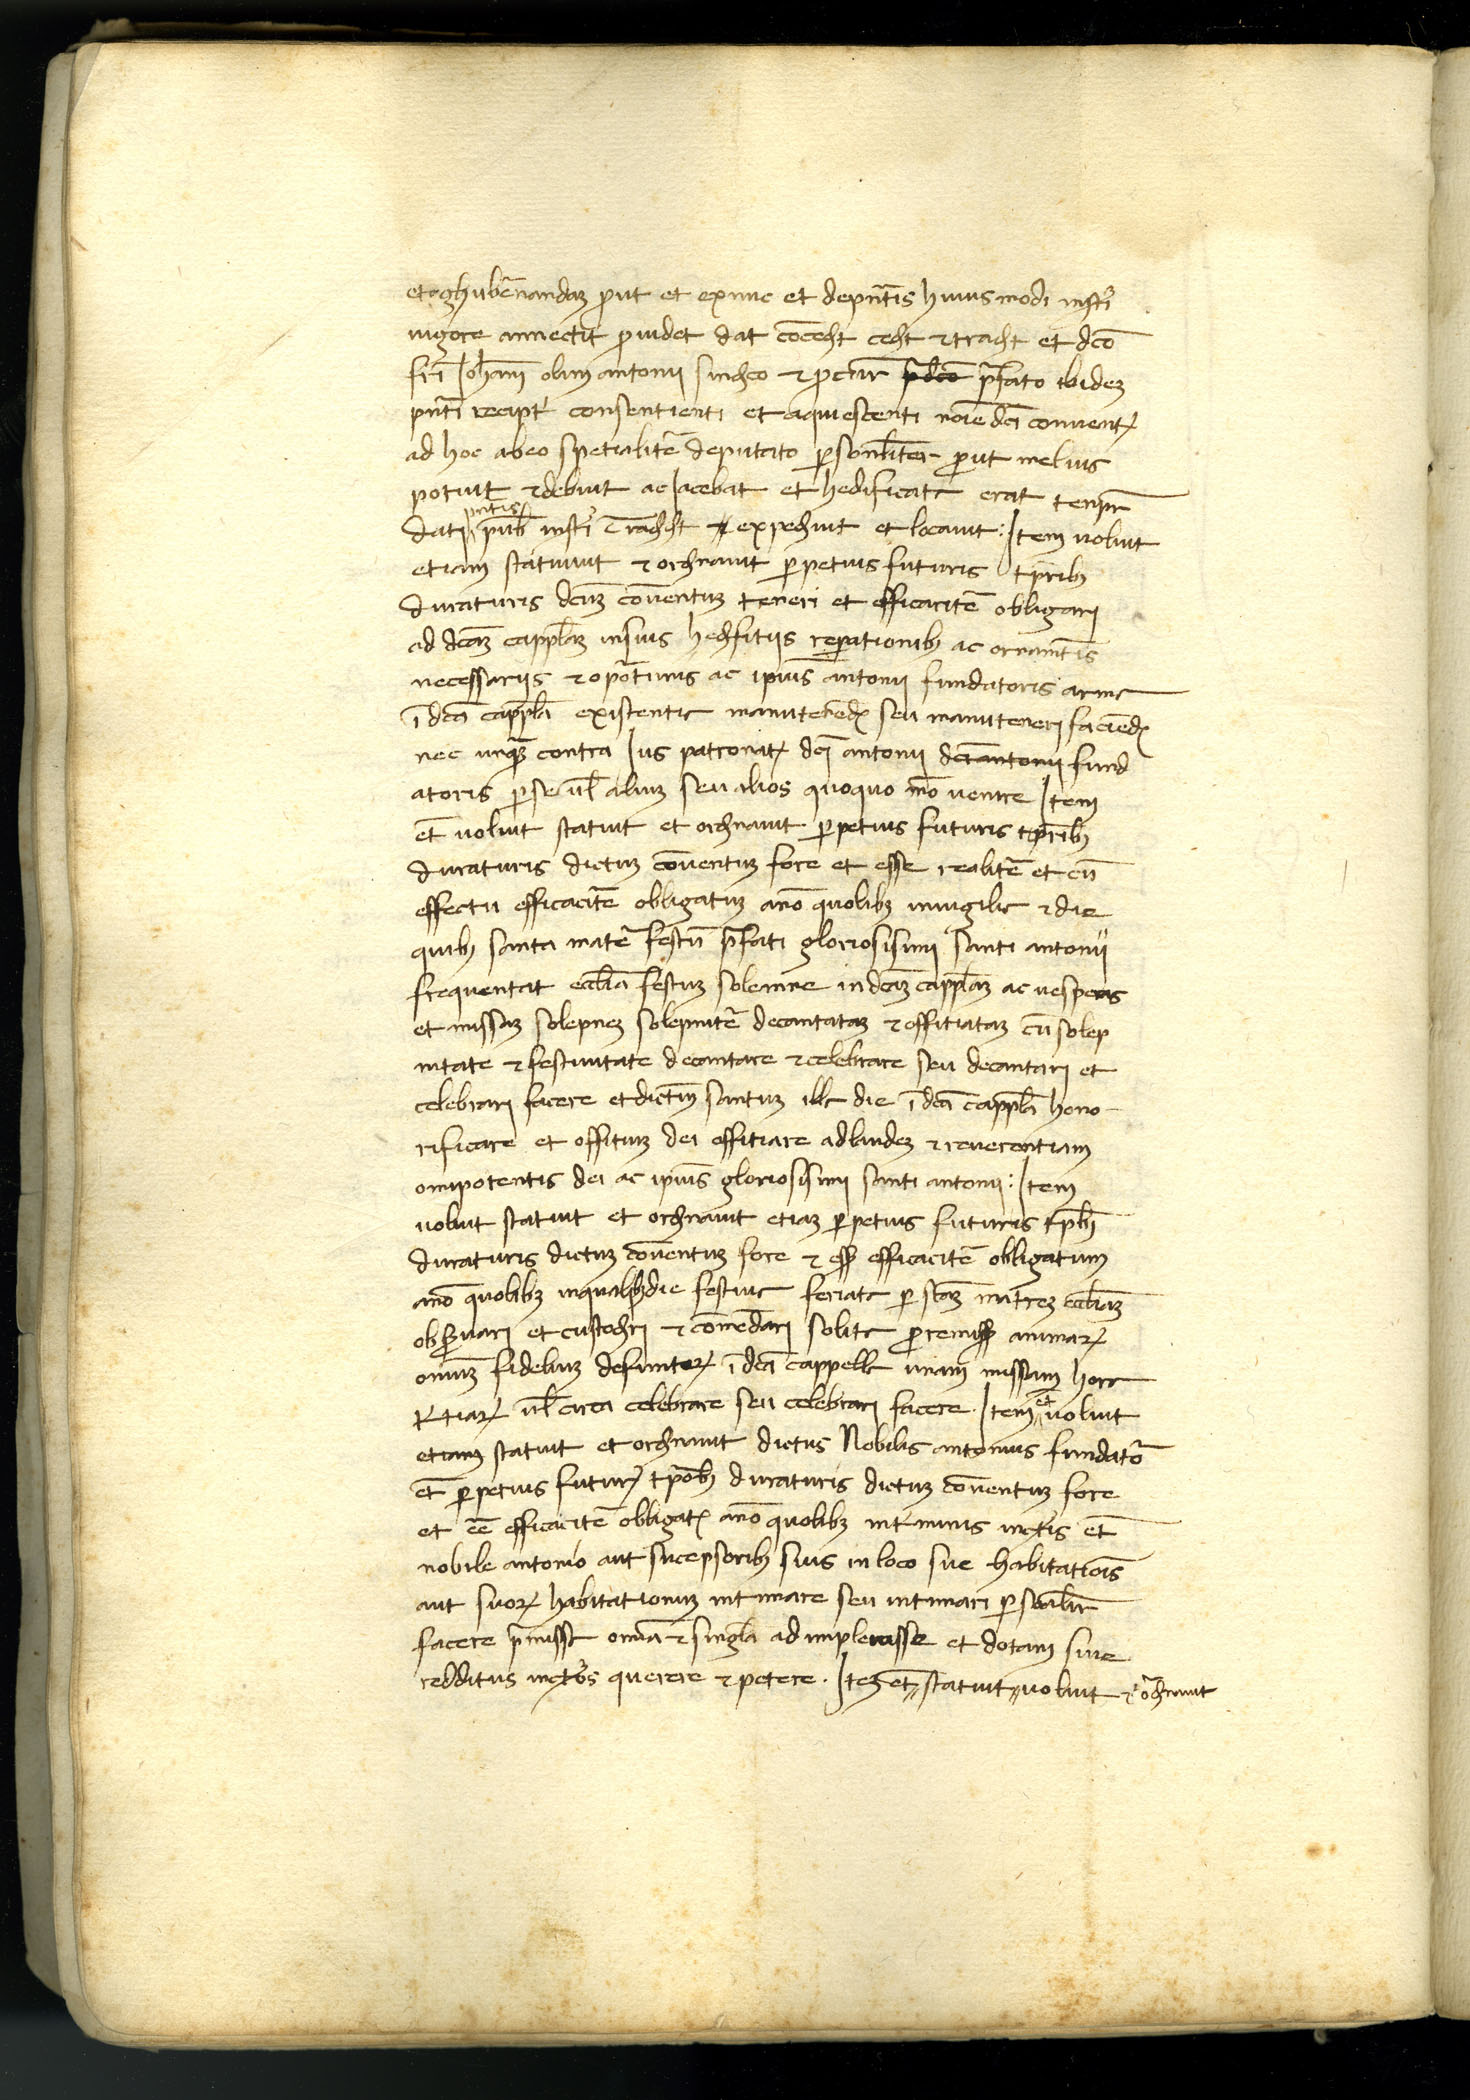 et ghubernandam prout et exnunc et depntis huiusmodi instri
uigore annectit prouidet dat concedit cedit et tradit et dco
fri Johani olim antonii sindico et procur prefato ibidem
pnti recipti consentienti et aquiescenti noie dci conuentus
ad hoc abeo spetialiter deputato personaliter prout melius
potuit et debuit ac Iacebat et hedificata erat tempr
dati pntis pub instri tradidit expediuit et locauit: Item uoluit
etiam statuuit et ordinauit perpetuis futuris tprib
duraturis dcum conuentum teneri et efficaciter obligari
ad dcam cappellam insuis hedifitiis reparationib ac ornamtis
necessariis et oportunis ac ipius antonii fundatoris arma
i dca cappella existentia manutenend seu manuteneri faciend
nec unqua contra Ius patronatus dci antonii dci antonii fund
atoris per se uel alium seu alios quoquo mo uenire Item
et uoluit statuit et ordinauit perpetuis futuris tprib
duraturis dictum conuentum fore et esse realiter et cu
effectu efficaciter obligatum ano quolibet inuigilia et die
quib santa mater festu prefati gloriosisimi santi antonii
frequentat ecclia festum solemne in dcam cappellam ac uesperas
et missam solepnem solepniter decantatam et offitiatam cu solep
nitate et festiuitate decantare et celebrare seu decantari et
celebrari facere et dictum santum illa die i dca cappella hono-
rificare et offitium dei offitiare ad laudem et reuerentiam
omipotentis dei ac ipius gloriosisimi santi antonii: Item
uoluit statuit et ordinauit etiam perpetuis futuris tpib
duraturis dictum conuentum fore et esse efficaciter obligatum
ano quolibet in qualibet die festiua feriata per stam matrem eccliam
obseruari et custodiri et comendari solita pro remissione animarum
omium fidelium defuntorum i dca cappella unam missam hora
tertiarum uel circa celebrare seu celebrari facere. Item et uoluit
etiam statuit et ordinauit dictus Nobilis antonius fundator
et perpetuis futuris tpob duraturis dictum conuentum fore
et ee efficaciter obligatus ano quolibet et
nobile antonio aut sucesorib suis in loco sue habitationis
aut suorum habitationum intimare seu intimari personaliter
facere premissa omia et singula adimpleuisse et dotam siue
redditus querere et petere. Item et statuit uoluit et ordinauit